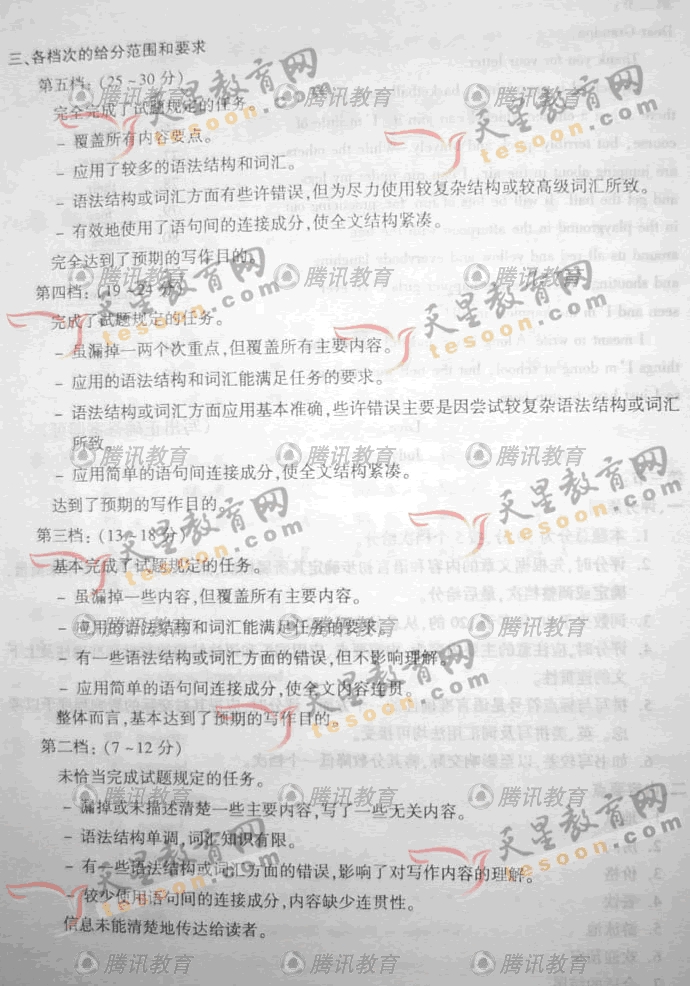 三、各档次的给分范围和要求
第五档：（25～30分）
完全完成了试题规定的任务。
－ 覆盖所有内容要点。
－ 应用了较多的语法结构和词汇。
－ 语法结构或词汇方面有些许错误，但为尽力使用较复杂结构或较高级词汇所致。
－ 有效地使用了语句间的连接成分，使全文结构紧凑。
完全达到了预期的写作目的。
第四档：（19～24分）
完成了试题规定的任务。
－ 虽漏掉一两个次重点，但覆盖所有主要内容。
－ 应用的语法结构和词汇能满足任务的要求。
－ 语法结构或词汇方面应用基本准确，些许错误主要是因尝试较复杂语法结构或词汇
所致。
－ 应用简单的语句间连接成分，使全文结构紧凑。
达到了预期的写作目的。
第三档：（13～18分）
基本完成了试题规定的任务。
－ 虽漏掉一些内容，但覆盖所有主要内容。
－ 应用的语法结构和词汇能满足任务的要求。
－ 有一些语法结构或词汇方面的错误，但不影响理解。
－ 应用简单的语句间连接成分，使全文内容连贯。
整体而言，基本达到了预期的写作目的。
第二档：（7～12分）
未恰当完成试题规定的任务。
－ 漏掉或未描述清楚一些主要内容，写了一些无关内容。
－ 语法结构单调，词汇知识有限。
－ 有一些语法结构或词汇方面的错误，影响了对写作内容的理解。
－ 较少使用语句间的连接成分，内容缺少连贯性。
信息未能清楚地传达给读者。
腾讯教育
天星教育网
tesoon.com